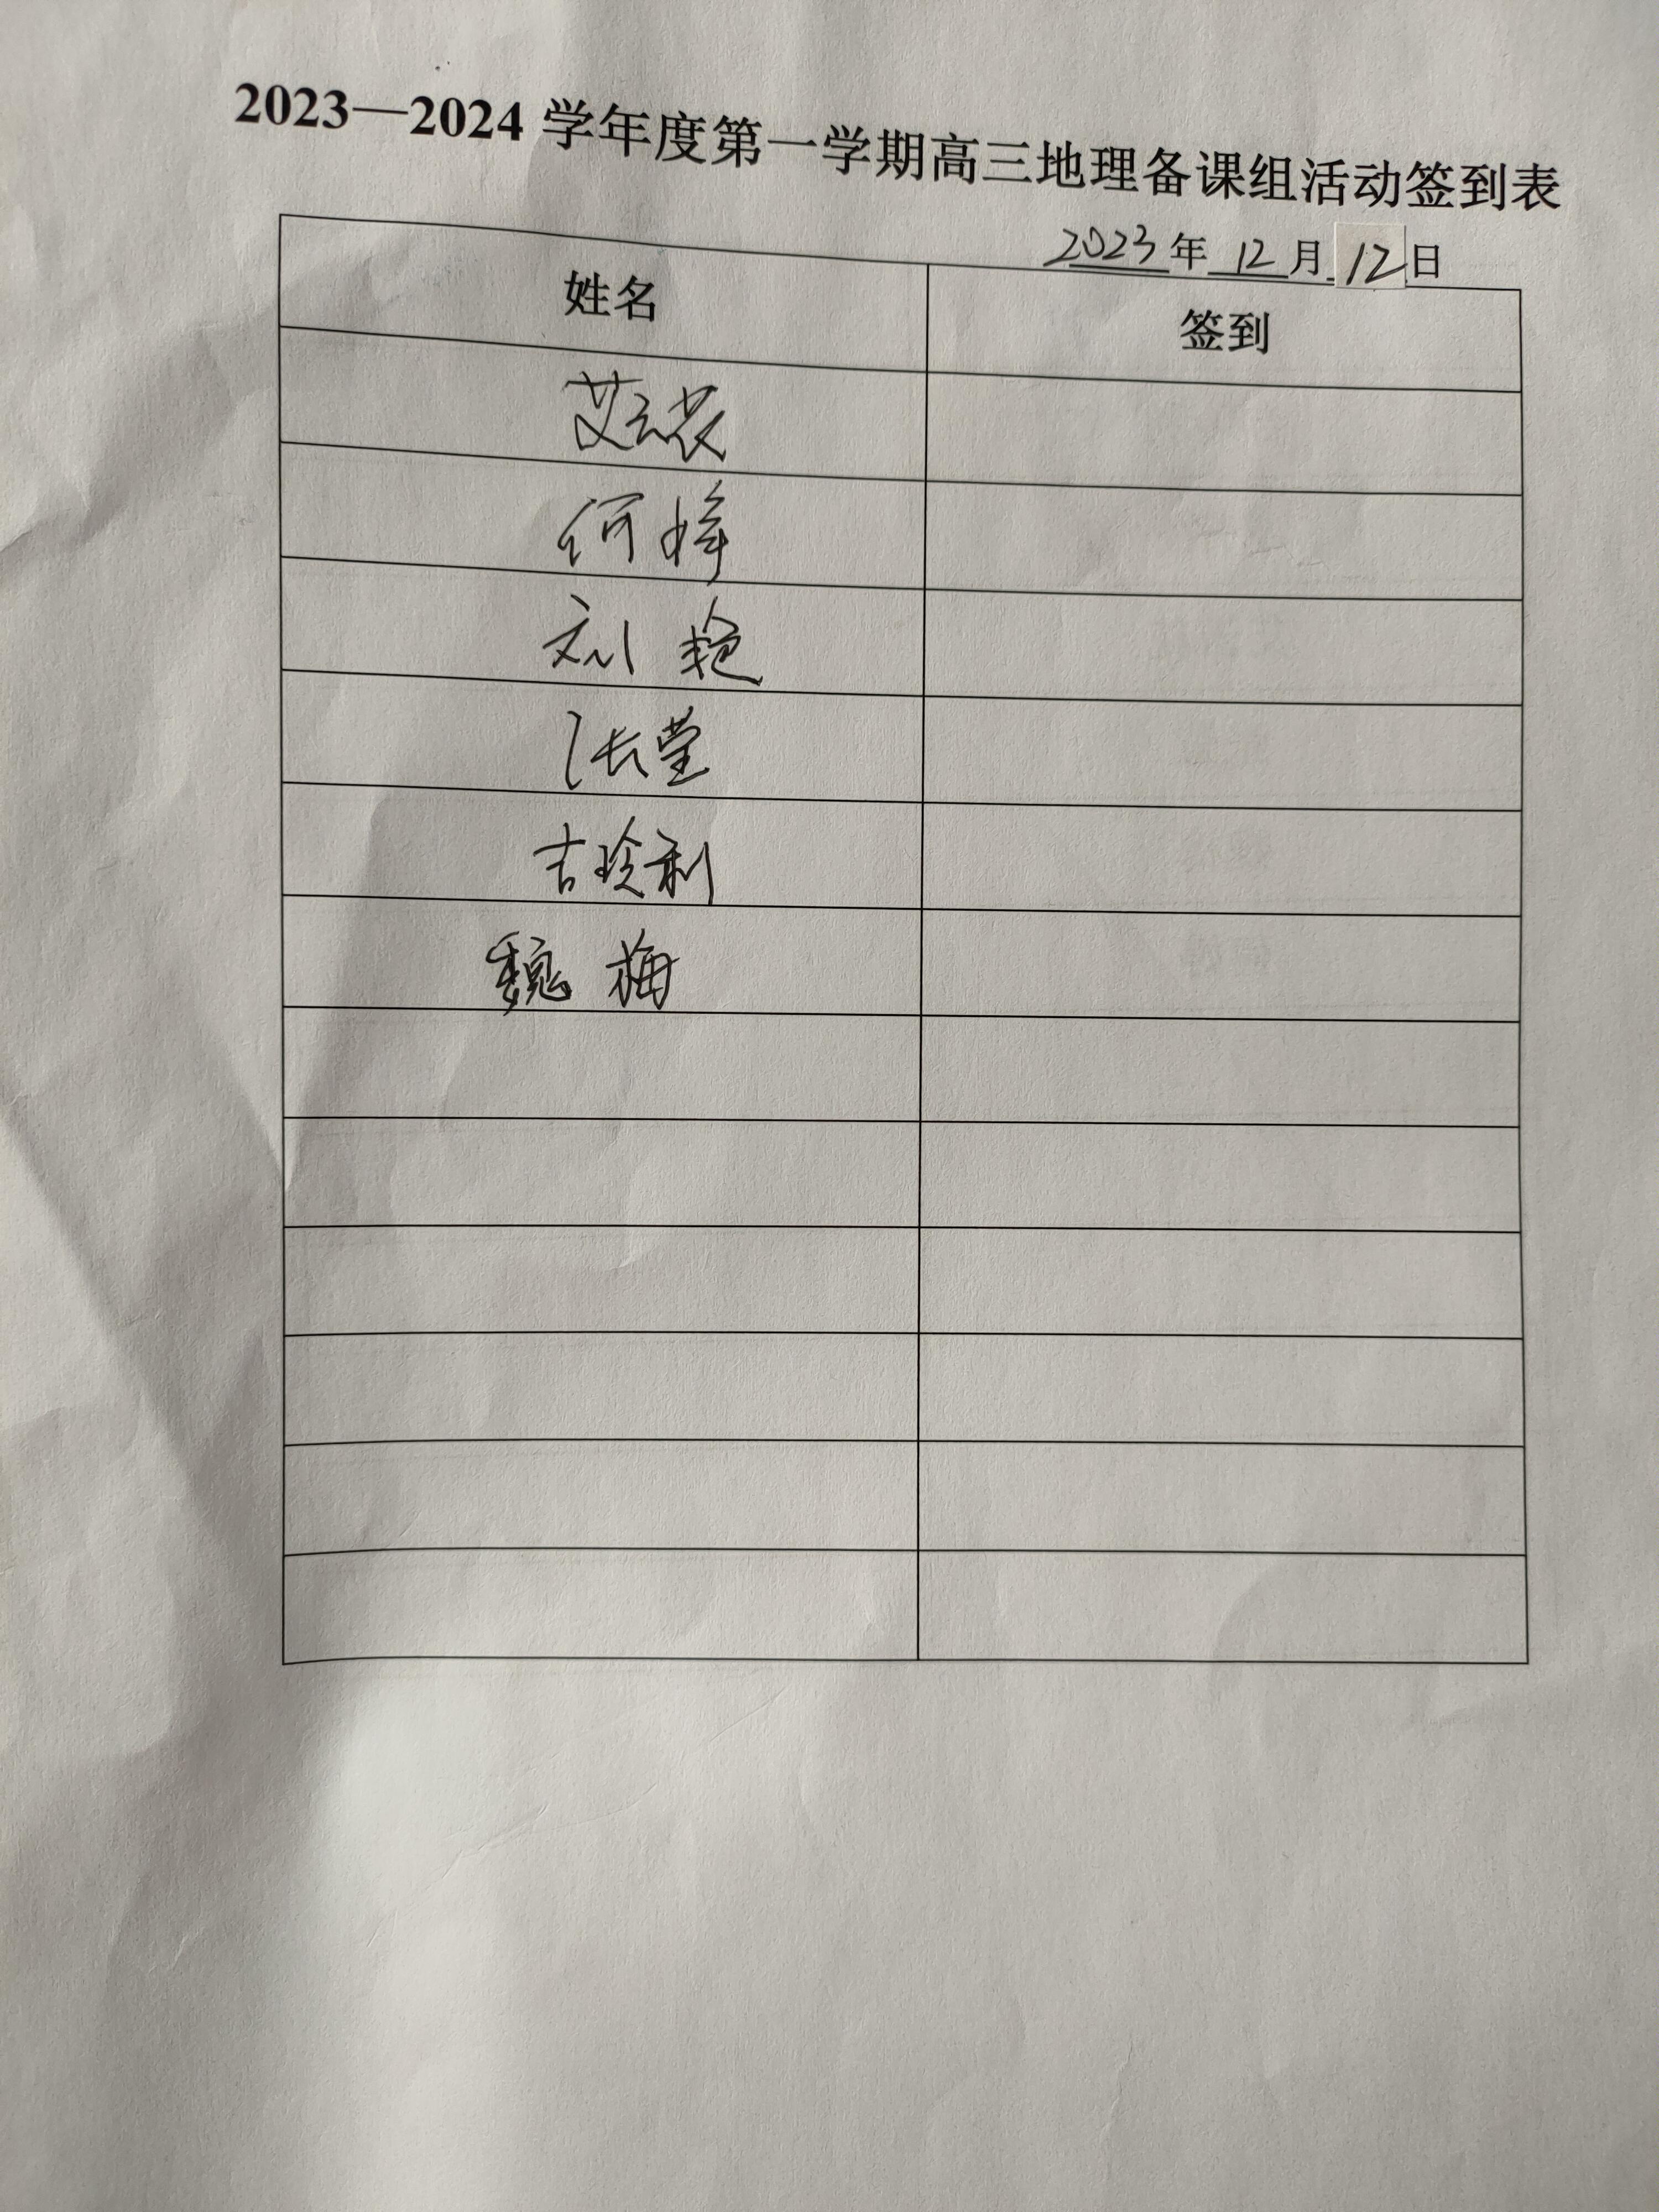 2023—2024 学年度第一学期高三地理备课组活动签到表
2023年 12月 12日
姓名 签到
艾云
何
刘艳
张莹
吉玲利
魏梅